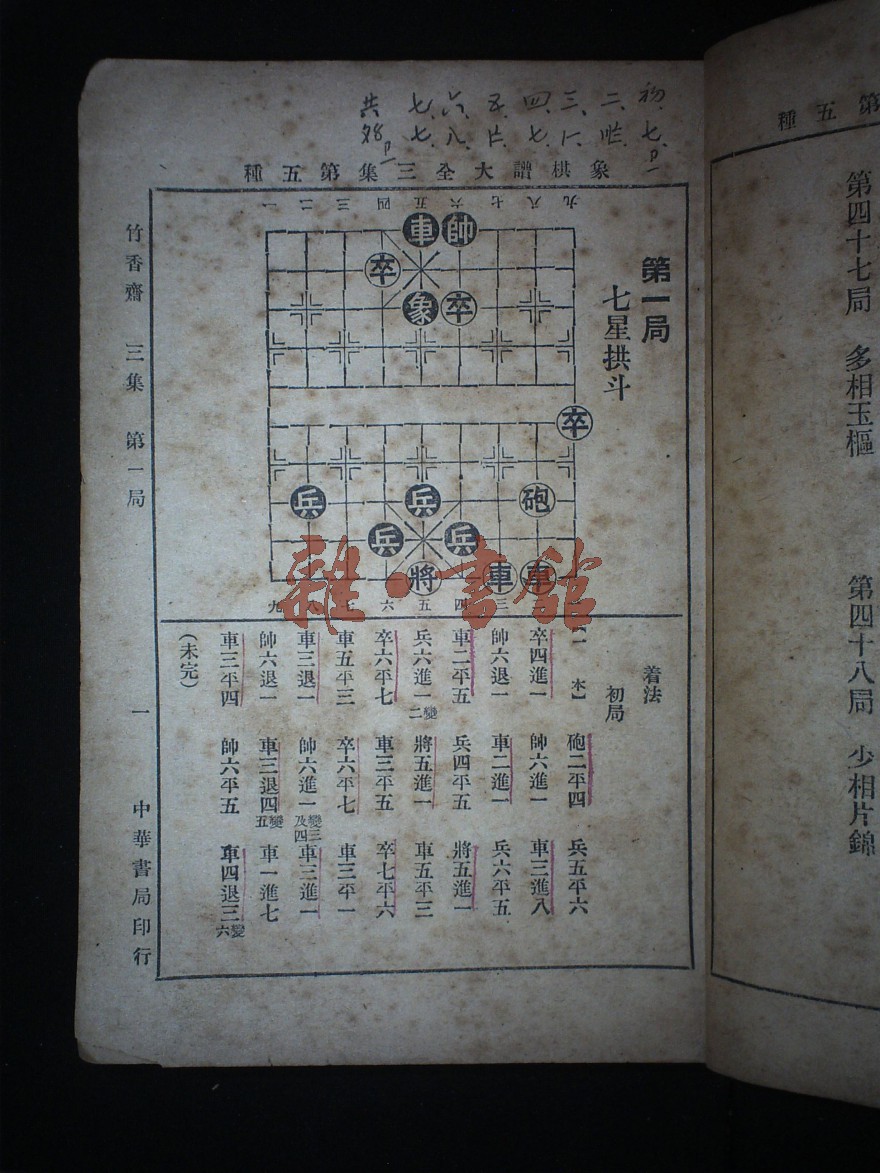 初、七、
二、
三、
四、七、
五、
六、八、
七、七、
共
象棋譜大全三集第五種
第一局
七星拱斗
一二三四五六七八九
車帥
卒
象卒
卒
兵兵砲
兵兵
將車車
九八七六五四三
着法
初局
砲二平四 兵五平六
卒四進一 帥六進一 車三進八
帥六退一 車二進一 兵六平五
車二平五 兵四平五 將五進一
兵六進一變二 將五進一 車五平三
卒六平七 車三平五 卒七平六
車五平三 卒六平七 車三平一
車三退一 帥六進一變三及四 車三進一
帥六退一 車三退四變五 車一進七
車三平四 帥六平五 車四退三變六
(未完)
竹香齋 三集 第一局
一
中華書局印行
雜·書館
第五種
第四十七局 多相玉樞
第四十八局 少相片錦